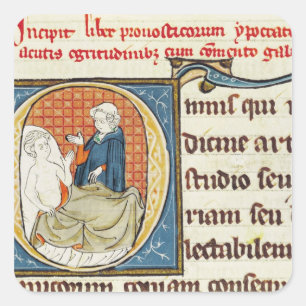 Incipit liber pronosticorum ypocratis
acutis egritudinibus cum comento gali
mnis qui
dicine art
studio seu
riam seu
lectabilem
unicorum coniam consequ